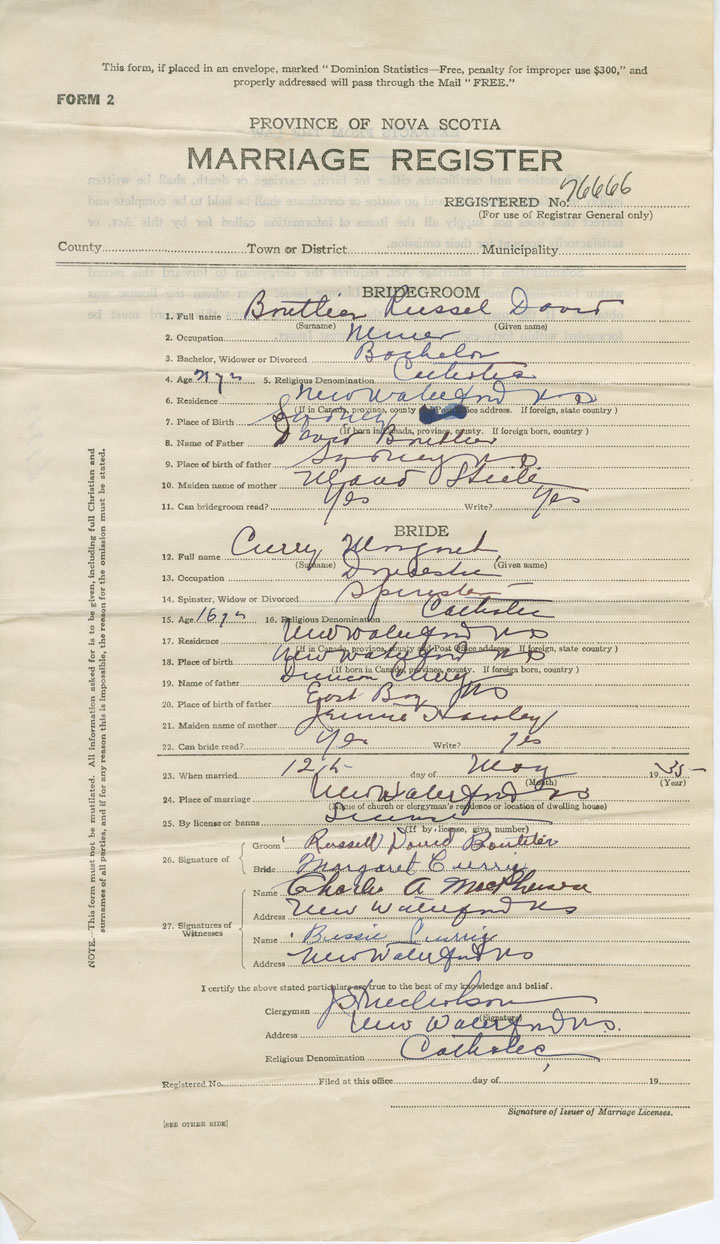 This form, if placed in an envelope, marked "Dominion Statistics—Free, penalty for improper use $300," and
properly addressed will pass through the Mail "FREE."
FORM 2
PROVINCE OF NOVA SCOTIA
MARRIAGE REGISTER
REGISTERED No. 76666
(For use of Registrar General only)
County Town or District Municipality
BRIDEGROOM
1. Full name Boutlier Russel David
(Surname) (Given name)
2. Occupation Miner
3. Bachelor, Widower or Divorced Bachelor
4. Age 5. Religious Denomination Catholic
6. Residence New Waterford N S
(If in Canada, province, county and Post Office address. If foreign, state country)
7. Place of Birth Sydney
(If born in Canada, province, county. If foreign born, country)
8. Name of Father David Boutlier
9. Place of birth of father Sydney N S
10. Maiden name of mother Maud Steele
11. Can bridegroom read? Yes Write? Yes
BRIDE
12. Full name Curry Margaret
(Surname) (Given name)
13. Occupation Domestic
14. Spinster, Widow or Divorced Spinster
15. Age 16 yrs 16. Religious Denomination Catholic
17. Residence New Waterford N S
(If in Canada, province, county and Post Office address. If foreign, state country)
18. Place of birth New Waterford N S
(If born in Canada, province, county. If foreign born, country)
19. Name of father Duncan Curry
20. Place of birth of father East Bay N S
21. Maiden name of mother Jennie
22. Can bride read? Yes Write? Yes
23. When married 12th day of May 1935
(Month) (Year)
24. Place of marriage New Waterford N S
(Name of church or clergyman's residence or location of dwelling house)
25. By license or banns License
(If by license, give number)
26. Signature of
Groom Russell David Boutilier
Bride Margaret Curry
27. Signatures of Witnesses
Name Charlie A MacPherson
Address New Waterford N S
Name Bessie Currie
Address New Waterford N S
I certify the above stated particulars are true to the best of my knowledge and belief.
Clergyman Nicholson
(Signature)
Address New Waterford N.S.
Religious Denomination Catholic
Registered No. Filed at this office day of 19
Signature of Issuer of Marriage Licenses.
[SEE OTHER SIDE]
NOTE.—This form must not be mutilated. All information asked for is to be given, including full Christian and
surnames of all parties, and if for any reason this is impossible, the reason for the omission must be stated.